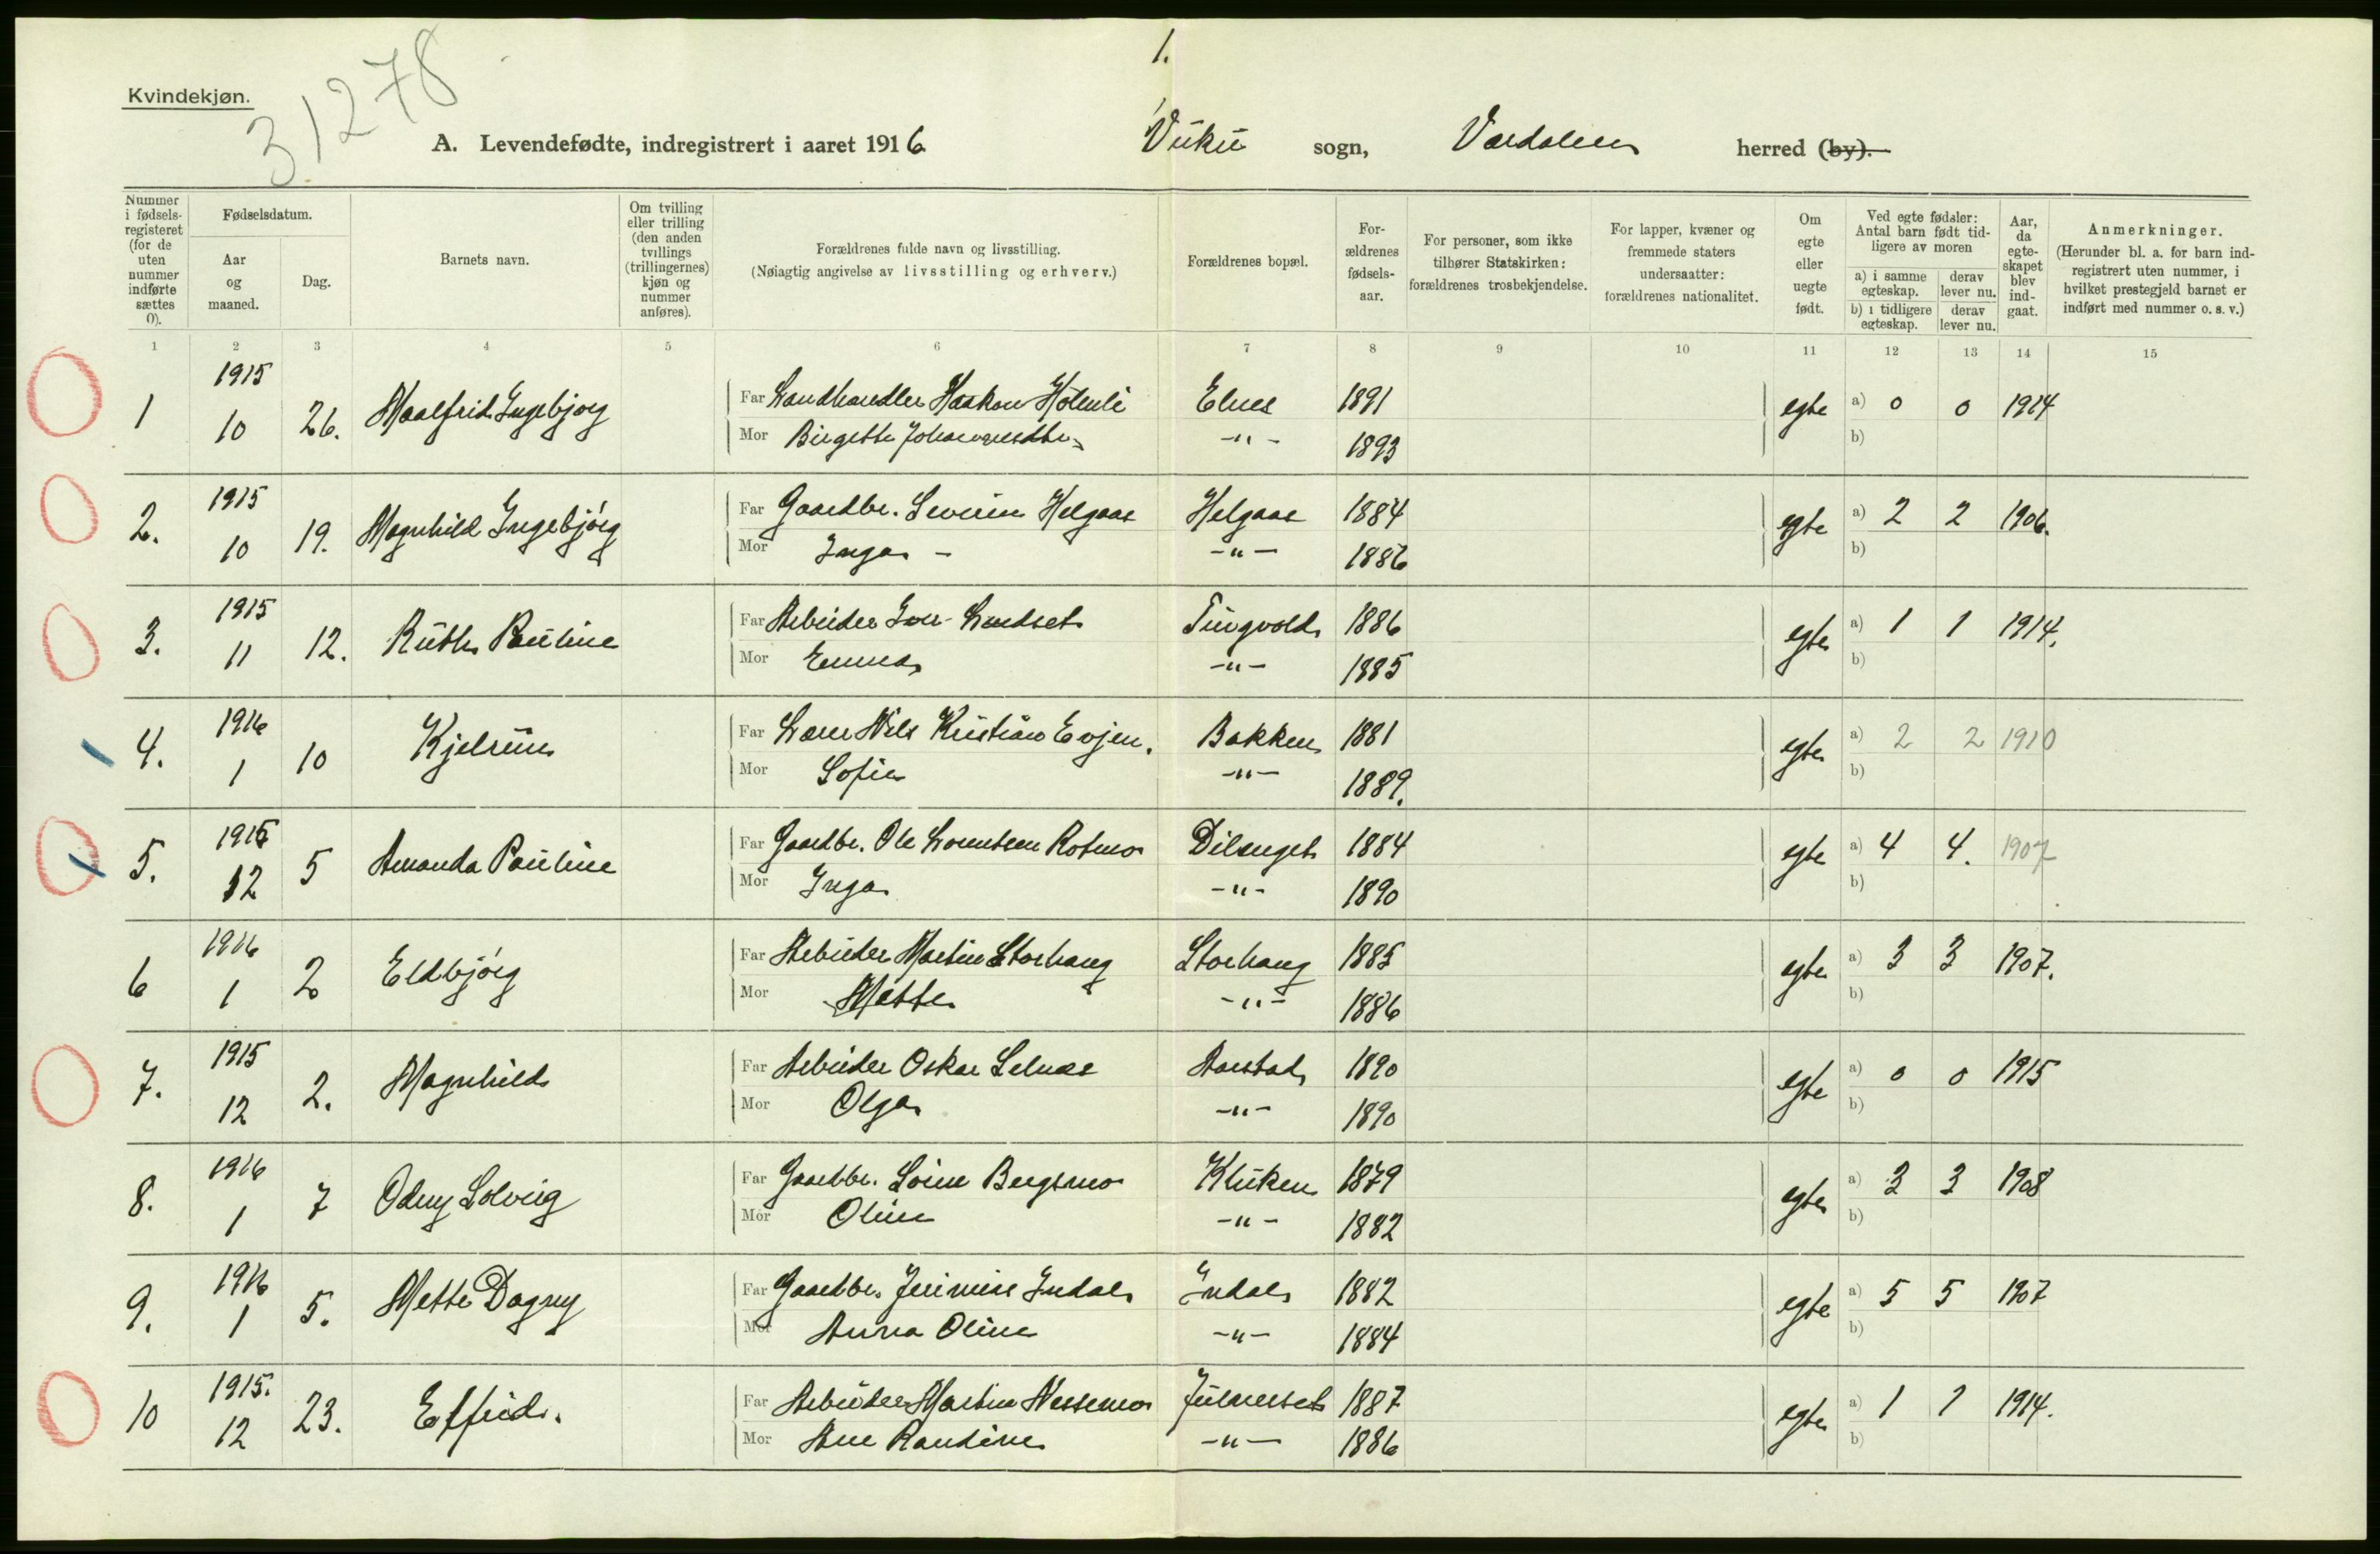 1.
Kvindekjøn.
31278
A. Levendefødte, indregistrert i aaret 1916 Vuku sogn, Værdalen herred (by).
Nummer i fødselsregisteret (for de uten nummer indførte sættes 0). Fødselsdatum. Aar og maaned. Dag. Barnets navn. Om tvilling eller trilling (den anden tvillings (trillingernes) kjøn og nummer anføres). Forældrenes fulde navn og livsstilling. (Nøiagtig angivelse av livsstilling og erhverv.) Forældrenes bopæl. Forældrenes fødselsaar. For personer, som ikke tilhører Statskirken: forældrenes trosbekjendelse. For lapper, kvæner og fremmede staters undersaatter: forældrenes nationalitet. Om egte eller uegte født. Ved egte fødsler: Antal barn født tidligere av moren a) i samme egteskap. derav lever nu. b) i tidligere egteskap. derav lever nu. Aar, da egteskapet blev indgaat. Anmerkninger. (Herunder bl. a. for barn indregistrert uten nummer, i hvilket prestegjeld barnet er indført med nummer o. s. v.)
1 2 3 4 5 6 7 8 9 10 11 12 13 14 15
1 1915 10 26. Maalfrid Ingebjorg Far Landhandler Haakon Holmli Elnes 1891 egte a) 0 0 1914
Mor Birgitte Johannesdtr. -"- 1893 b)
2. 1915 10 19. Magnhild Ingebjörg Far Gaardbr. Severin Helgaas Helgaas 1884 egte a) 2 2 1906.
Mor Inga - -"- 1886 b)
3. 1915 11 12. Ruth Pauline Far Arbeider Iver Lundset Tingvold 1886 egte a) 1 1 1914.
Mor Emma -"- 1885 b)
4. 1916 1 10 Kjelrun Far Lærer Nils Kristian Evjen. Bakken 1881 egte a) 2 2 1910
Mor Sofie -"- 1889. b)
5. 1915 12 5 Amanda Pauline Far Gaardbr. Ole Lorentsen Rotmo 1884 egte a) 4 4. 1907
Mor Inga -"- 1890 b)
6 1916 1 2 Eldbjörg Far Arbeider Martin Storhaug Storhaug 1885 egte a) 3 3 1907.
Mor Mette -"- 1886 b)
7. 1915 12 2. Magnhild Far Arbeider Oskar Selnæs Aarstad 1890 egte a) 0 0 1915
Mor Olga -"- 1890 b)
8. 1916 1 7 Odny Solveig Far Gaardbr. Bergsmo Kluken 1879 egte a) 3 3 1908
Mor Oline -"- 1882 b)
9. 1916 1 5. Mette Dagny Far Gaardbr. Jerimias Indal Indal 1882 egte a) 5 5 1907
Mor Anna Oline -"- 1884 b)
10 1915. 12 23. Elfrid. Far Arbeider Martin Nessemo Julnesset 1887 egte a) 1 1 1914.
Mor Ane Randine -"- 1886 b)